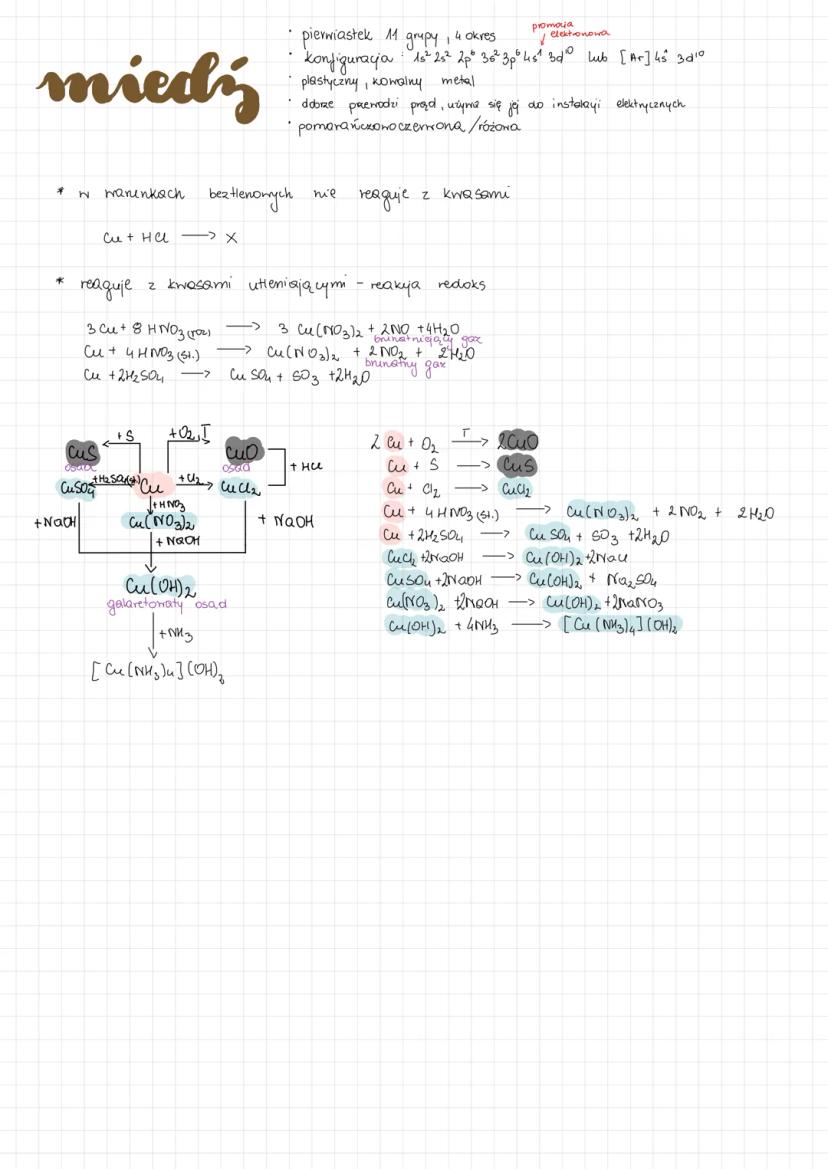 miedź
· pierwiastek 11 grupy, 4 okres
promocja elektronowa
· konfiguracja: 1s² 2s² 2p⁶ 3s² 3p⁶ 4s¹ 3d¹⁰ lub [Ar] 4s¹ 3d¹⁰
· plastyczny, kowalny metal
· dobrze przewodzi prąd, używa się jej do instalacji elektrycznych
· pomarańczowoczerwona/różowa
* w warunkach beztlenowych nie reaguje z kwasami
Cu + HCl → X
* reaguje z kwasami utleniającymi - reakcja redoks
3 Cu + 8 HNO₃(roz) → 3 Cu(NO₃)₂ + 2NO + 4H₂O
brunatniejący gaz
Cu + 4 HNO₃(st.) → Cu(NO₃)₂ + 2 NO₂ + 2H₂O
brunatny gaz
Cu + 2H₂SO₄ → CuSO₄ + SO₃ + 2H₂O
CuS +S +O₂,T CuO
osad osad
+ HCl
CuSO₄ +H₂SO₄(st) Cu +Cl₂ CuCl₂
+HNO₃
+NaOH Cu(NO₃)₂ + NaOH
+ NaOH
Cu(OH)₂
galaretowaty osad
+NH₃
[Cu(NH₃)₄](OH)₂
2 Cu + O₂ T → 2CuO
Cu + S → CuS
Cu + Cl₂ → CuCl₂
Cu + 4 HNO₃(st.) → Cu(NO₃)₂ + 2 NO₂ + 2 H₂O
Cu + 2H₂SO₄ → CuSO₄ + SO₃ + 2H₂O
CuCl₂ + 2NaOH → Cu(OH)₂ + 2NaCl
CuSO₄ + 2NaOH → Cu(OH)₂ + Na₂SO₄
Cu(NO₃)₂ + 2NaOH → Cu(OH)₂ + 2NaNO₃
Cu(OH)₂ + 4NH₃ → [Cu(NH₃)₄](OH)₂